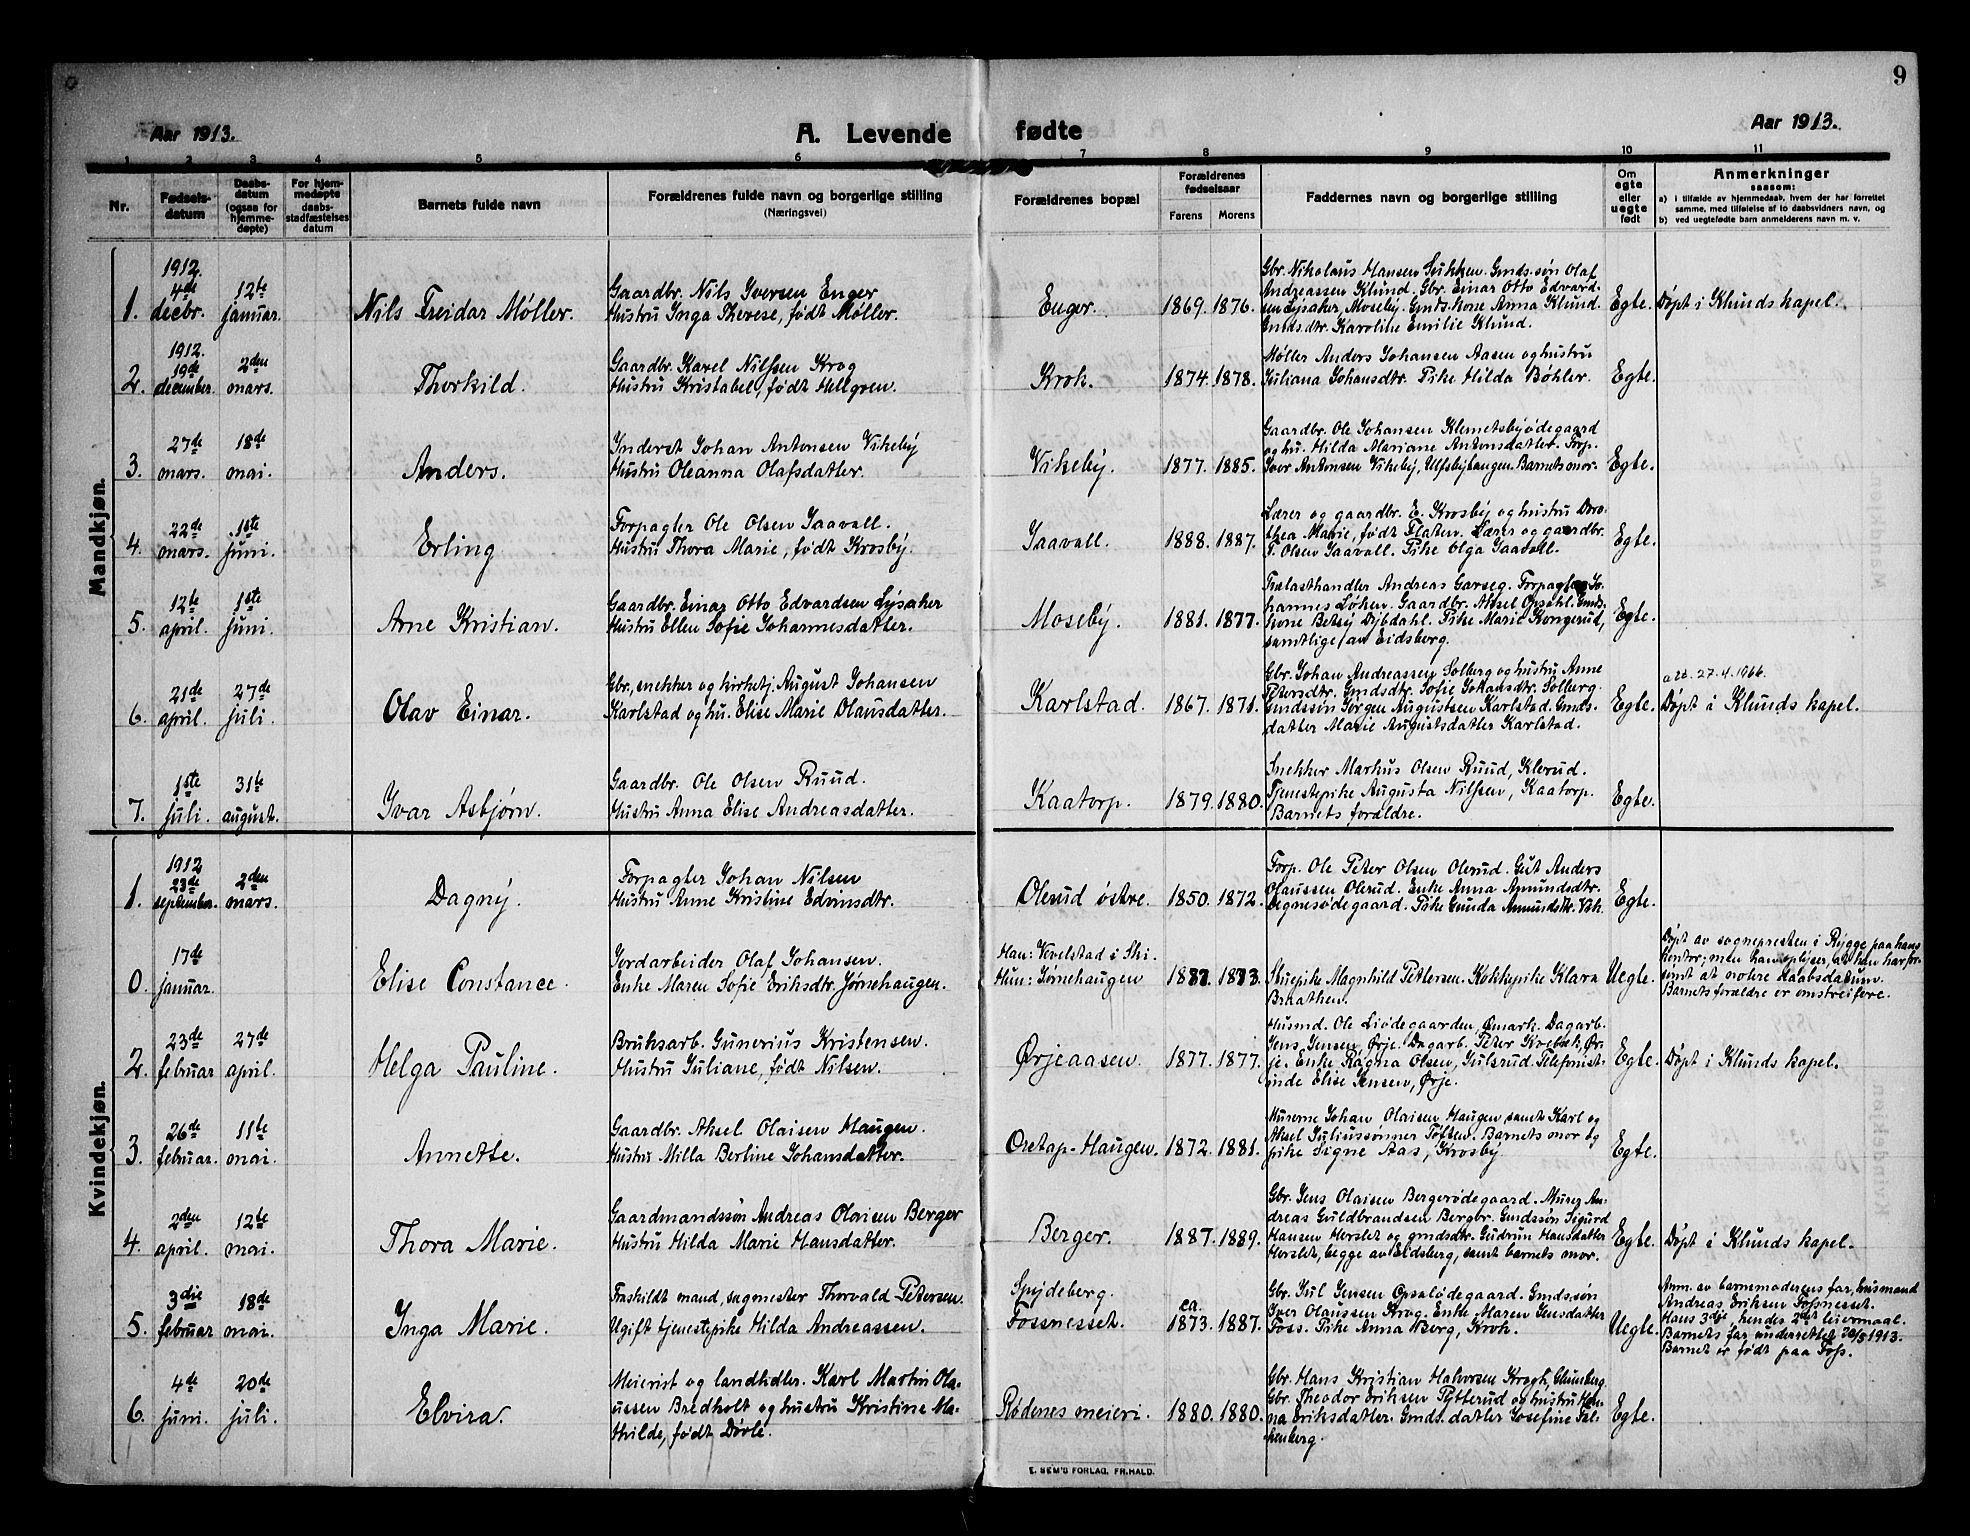 9
Aar 1913.
A. Levende fødte
Aar 1913.
1 2 3 4 5 6 7 8 9 10 11
Nr.
Fødsels-
datum
Daabs-
datum
(ogsaa for
hjemme-
døpte)
For hjem-
medøpte
daabs-
stadfæstelses
datum
Barnets fulde navn
Forældrenes fulde navn og borgerlige stilling
(Næringsvei)
Forældrenes bopæl
Forældrenes
fødselsaar
Farens Morens
Faddernes navn og borgerlige stilling
Om
egte
eller
uegte
født
Anmerkninger
saasom:
a) i tilfælde av hjemmedaab, hvem der har forrettet
samme, med tilføielse af to daabsvidners navn, og
b) ved uegtefødte barn anmelderens navn m. v.
Mandkjøn.
1.
1912.
4de
decbr.
12te
januar.
Nils Freidar Møller.
Gaardbr. Nils Iversen Enger
Hustru Inga Therese, født Møller.
Enger.
1869. 1876.
Gbr. Nikolaus Hansen Sukken. Gmds.søn Olaf
Andreassen Klund. Gbr. Einar Otto Edvard-
sen Lysaker, Moseby. Gmds.kone Anna Klund.
Gmds.dtr. Karoline Emilie Klund.
Egte.
Døpt i Klunds kapel.
2.
1912.
19de
december.
2den
mars.
Thorkild.
Gaardbr. Karel Nilssen Krog
Hustru Kristabel, født Hellgren.
Krok.
1874. 1878.
Møller Anders Johansen Aasen og hustru
Juliana Johansdtr. Pike Hilda Bøhler.
Egte.
3.
27de
mars.
18de
mai.
Anders.
Inderst Johan Antonsen Vikeby
Hustru Oleanna Olafsdatter.
Vikeby.
1877. 1885.
Gaardbr. Ole Johansen Klemetsbyødegaard
og hu. Hilda Mariane Antonsdatter. Forp.
Iver Antonsen Vikeby, Ulfsbytangen. Barnets mor.
Egte.
4.
22de
mars.
1ste
juni.
Erling
Forpagter Ole Olsen Jaavall.
Hustru Thora Marie, født Krosby.
Jaavall.
1888. 1887.
Lærer og gaardbr. E. Krosby og hustru Doro-
thea Marie, født Flaten. Lærer og gaardbr.
T. Olsen Jaavall. Pike Olga Jaavall.
Egte.
5.
12te
april.
1ste
juni.
Arne Kristian.
Gaardbr. Einar Otto Edvardsen Lysaker
Hustru Ellen Sofie Johannesdatter.
Moseby.
1881. 1877.
Trælasthandler Andreas Garseg. Forpagter Jo-
hannes Løken. Gaardbr. Aksel Opsahl. Gmds-
kone Betsy Dybdahl. Pike Marie Kongerud,
samtlige av Eidsberg.
Egte.
6.
21de
april.
27de
juli.
Olav Einar.
Gbr., snekker og kirketj. August Johansen
Karlstad og hu. Elise Marie Olausdatter.
Karlstad.
1867. 1871.
Gbr. Johan Andreassen Solberg og hustru Anne
Petersdtr. Gmdsdtr. Sofie Johansdtr. Solberg.
Gmdssøn Jørgen Augustsen Karlstad. Gmds-
datter Marie Augustsdatter Karlstad.
Egte.
att. 27.4.1966.
Døpt i Klunds kapel.
7.
1ste
juli.
31te
august.
Ivar Asbjørn.
Gaardbr. Ole Olsen Ruud.
Hustru Anna Elise Andreasdatter.
Kaatorp.
1879. 1880.
Snekker Markus Olsen Ruud, Klerud.
Tjenestepike Augusta Nilssen, Kaatorp.
Barnets forældre.
Egte.
Kvindekjøn.
1.
1912
23de
september.
2den
mars.
Dagny.
Forpagter Johan Nilsen
Hustru Anne Kristine Edvinsdtr.
Olerud østre.
1850. 1872.
Forp. Ole Peter Olsen Olerud. Gut Anders
Olaussen Olerud. Enke Anna Amundsdtr.
Degnesødegaard. Pike Gunda Amundsdtr. Vik.
Egte.
0.
17de
januar.
Elise Constance.
Jordarbeider Olaf Johansen.
Enke Maren Sofie Eriksdtr. Jørnehaugen.
Han: Vevelstad i Ski.
Hun: Jørnehaugen
1887. 1873.
Stuepike Magnhild Pettersen. Kokkepike Klara
Bråthen.
Uegte.
Døpt av sognepresten i Rygge paa hans
kontor; men han oplyser, at han har for-
sømt at notere daabsdatum.
Barnets forældre er omstreifere.
2.
23de
februar
27de
april.
Helga Pauline.
Bruksarb. Gunerius Kristensen.
Hustru Juliane, født Nilsen.
Ørjeaasen.
1877. 1877.
Husmd. Ole Liødegaarden, Ømark. Dagarb.
Jens Jensen, Ørje. Dagarb. Peter Kvebæk, Ør-
je. Enke Ragna Olsen, Gulsrud. Telefonist-
inde Elise Jensen, Ørje.
Egte.
Døpt i Klunds kapel.
3.
26de
februar.
11te
mai.
Annette.
Gaardbr. Aksel Olaisen Haugen.
Hustru Milla Bertine Johansdatter.
Øretap-Haugen.
1872. 1881.
Murerne Johan Olaisen Haugen samt Karl og
Aksel Juliussønner Toften. Barnets mor og
pike Signe Aas, Krosby
Egte.
4.
2den
april.
12te
mai.
Thora Marie.
Gaardmandssøn Andreas Olaisen Berger
Hustru Hilda Marie Hansdatter.
Berger.
1887. 1889.
Gbr. Jens Olaisen Bergerødegaard. Murer An-
dreas Guldbrandsen Bergbr. Gmdssøn Sigurd
Hansen Horslet og gmdsdtr. Gudrun Hansdatter
Horslet, begge av Eidsberg, samt barnets mor.
Egte.
Døpt i Klunds kapel.
5.
3die
februar
18de
mai.
Inga Marie.
Fraskildt mand, sagmester Thorvald Petersen.
Ugift tjenestepike Hilda Andreassen.
Spydeberg.
Fossnesset.
ca.
1873. 1887.
Gbr. Jul Jensen Opsalødegaard. Gmds.søn
Iver Olaussen Krog. Enke Maren Jensdatter
Foss. Pike Anna Nberg, Krok.
Uegte.
Anm. av barnemoderens far, husmand
Andreas Eriksen Fossnesset.
Hans 3die, hendes 2det leiermaal.
Barnets far underrettet 20/5 1913.
Barnet er født paa Foss.
6.
4de
juni.
20de
juli.
Elvira.
Meierist og landhdler. Karl Martin Ola-
ussen Bredholt og hustru Kristine Ma-
thilde, født Dørle.
Rødenes meieri.
1880. 1880.
Gbr. Hans Kristian Halvorsen Krogh, Glumberg.
Gbr. Theodor Eriksen Tytterud og hustru Han-
na Eriksdatter. Gmds.datter Josefine Fal-
kenberg.
Egte.
E. SEM'S FORLAG, FR.HALD.